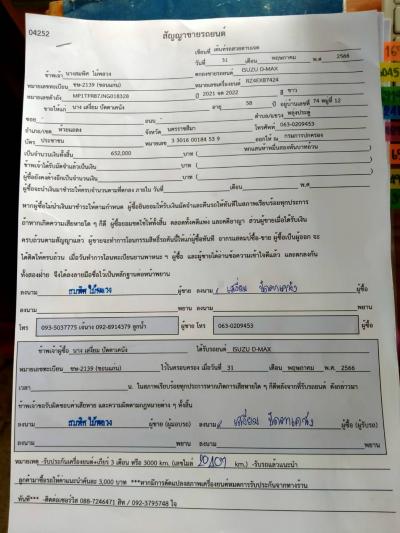 04252
สัญญาขายรถยนต์
เขียนที่ เต้นท์รถสวยตามเจต
วันที่ 31 เดือน พฤษภาคม พ.ศ 2566
ข้าพเจ้า นางสมพิศ ไม้พลวง ตกลงขายรถยนต์ ISUZU D-MAX
หมายเลขทะเบียน ขษ-2139 (ขอนแก่น) หมายเลขเครื่องยนต์ RZ4EXB7424
หมายเลขตัวถัง MP1TFR87JNG018328 ปี 2021 จด 2022 สี ขาว
ขายให้แก่ นาง เสงี่ยม ปัดตาเคนัง อายุ 58 ปี อยู่บ้านเลขที่ 74 หมู่ที่ 12
ซอย - ถนน - ตำบล/แขวง หลุงประดู่
อำเภอ/เขต ห้วยแถลง จังหวัด นครราชสีมา โทรศัพท์ 063-0209453
บัตร ประชาชน หมายเลข 3 3016 00184 53 9 ออกให้ ณ กรมการปกครอง
เป็นจำนวนเงินทั้งสิ้น 652,000 บาท ( หกแสนห้าหมื่นสองพันบาทถ้วน )
ข้าพเจ้าได้รับมัดจำแล้วเป็นเงิน บาท ( )
ผู้ซื้อยังคงค้างอีกเป็นจำนวนเงิน บาท ( )
ผู้ซื้อจะนำเงินมาชำระให้ครบจำนวนตามที่ตกลง ภายใน วันที่ เดือน พ.ศ
หากผู้ซื้อไม่นำเงินมาชำระให้ตามกำหนด ผู้ซื้อยินยอมให้ริบเงินมัดจำและคืนรถให้ทันทีในสภาพเรียบร้อยทุกประการ
ถ้าหากเกิดความเสียหายใด ๆ ก็ดี ผู้ซื้อยอมชดใช้ให้ทั้งสิ้น ตลอดทั้งคดีแพ่ง และคดีอาญา ส่วนผู้ขายเมื่อได้รับเงิน
ครบถ้วนตามสัญญาแล้ว ผู้ขายจะทำการโอนกรรมสิทธิ์รถคันนี้ให้แก่ผู้ซื้อทันที อากรแสตมป์ซื้อ-ขาย ผู้ซื้อเป็นผู้ออก จะ
ได้คิดให้ครบถ้วน เมื่อวันทำการโอนทะเบียนยานพาหนะ ๆ ผู้ซื้อ และผู้ขายได้อ่านข้อความเข้าใจดีแล้ว และตกลงกัน
ทั้งสองฝ่าย จึงได้ลงลายมือชื่อไว้เป็นหลักฐานต่อหน้าพยาน
ลงนาม สมพิศ ไม้พลวง ผู้ขาย ลงนาม เสงี่ยม ปัดตาเคนัง ผู้ซื้อ
ลงนาม พยาน ลงนาม พยาน
โทร 093-5037775 เจ๊นาง 092-8914379 ลูกน้ำ ผู้ขาย โทร 063-0209453 ผู้ซื้อ
ข้าพเจ้าผู้ซื้อ นาง เสงี่ยม ปัดตาเคนัง ได้รับรถยนต์ ISUZU D-MAX
หมายเลขทะเบียน ขษ-2139 (ขอนแก่น) ไว้ในครอบครอง เมื่อวันที่ 31 เดือน พฤษภาคม พ.ศ. 2566
เวลา น. ในสภาพเรียบร้อยทุกประการหากเกิดการเสียหายใด ๆ ก็ดีหลังจากที่รับรถยนต์ ดังกล่าวมา
ข้าพเจ้าขอรับผิดชอบค่าเสียหาย และความผิดตามกฎหมายต่าง ๆ ทั้งสิ้น
ลงนาม สมพิศ ไม้พลวง ผู้ขาย (ผู้มอบรถ) ลงนาม เสงี่ยม ปัดตาเคนัง ผู้ซื้อ (ผู้รับรถ)
ลงนาม พยาน ลงนาม พยาน
หมายเหตุ -รับประกันเครื่องยนต์+เกียร์ 3 เดือน หรือ 3000 km. (เลขไมล์ km.) -รับรถแล้วแนะนำ
ลูกค้ามาซื้อรถให้ค่าแนะนำคันละ 3,000 บาท ***หากมีการดัดแปลงสภาพเครื่องยนต์หมดการรับประกันจากทางร้าน
ทันที*** -ติดต่อเซอร์วิส 088-7246471 สิท / 092-3795748 ใจ